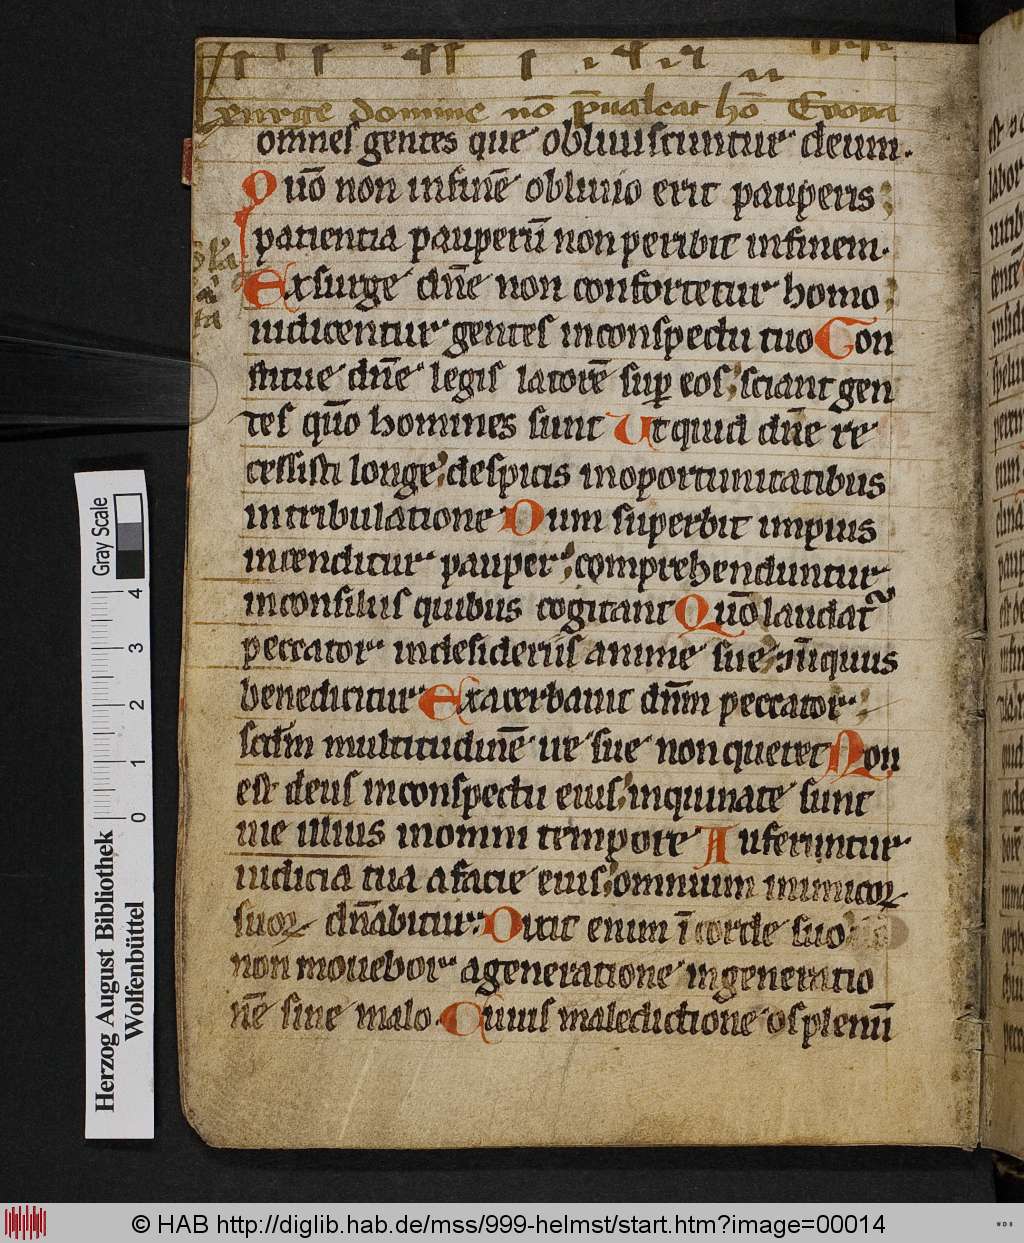 Exurge domine nō p̄ualeat hō Evova
omnes gentes que obliuiscuntur deum.
Quō non infinē obliuio erit pauperis
patientia pauperū non peribit infinem.
Exsurge dn̄e non confortetur homo
iudicentur gentes inconspectu tuo Con
stitue dn̄e legis latorē sup eos sciant gen
tes qūo homines sunt Ut quid dn̄e re
cessisti longe despicis inoportunitatibus
intribulatione Dum superbit impius
incenditur pauper comprehenduntur
inconsiliis quibus cogitant Quō laudat᷑
peccator indesideriis anime sue ⁊ iniquus
benedicitur Exacerbauit dn̄m peccator
scd̄m multitudinē ire sue non queret Non
est deus inconspectu eius inquinate sunt
uie illius inomni tempore Auferuntur
iudicia tua afacie eius omnium inimicoꝝ
suoꝝ dn̄abitur Dixit enim ī corde suo
non mouebor ageneratione ingeneratio
nē sine malo. Cuius maledictione os plenū
Gray Scale
4
3
2
1
0
Herzog August Bibliothek
Wolfenbüttel
© HAB http://diglib.hab.de/mss/999-helmst/start.htm?image=00014